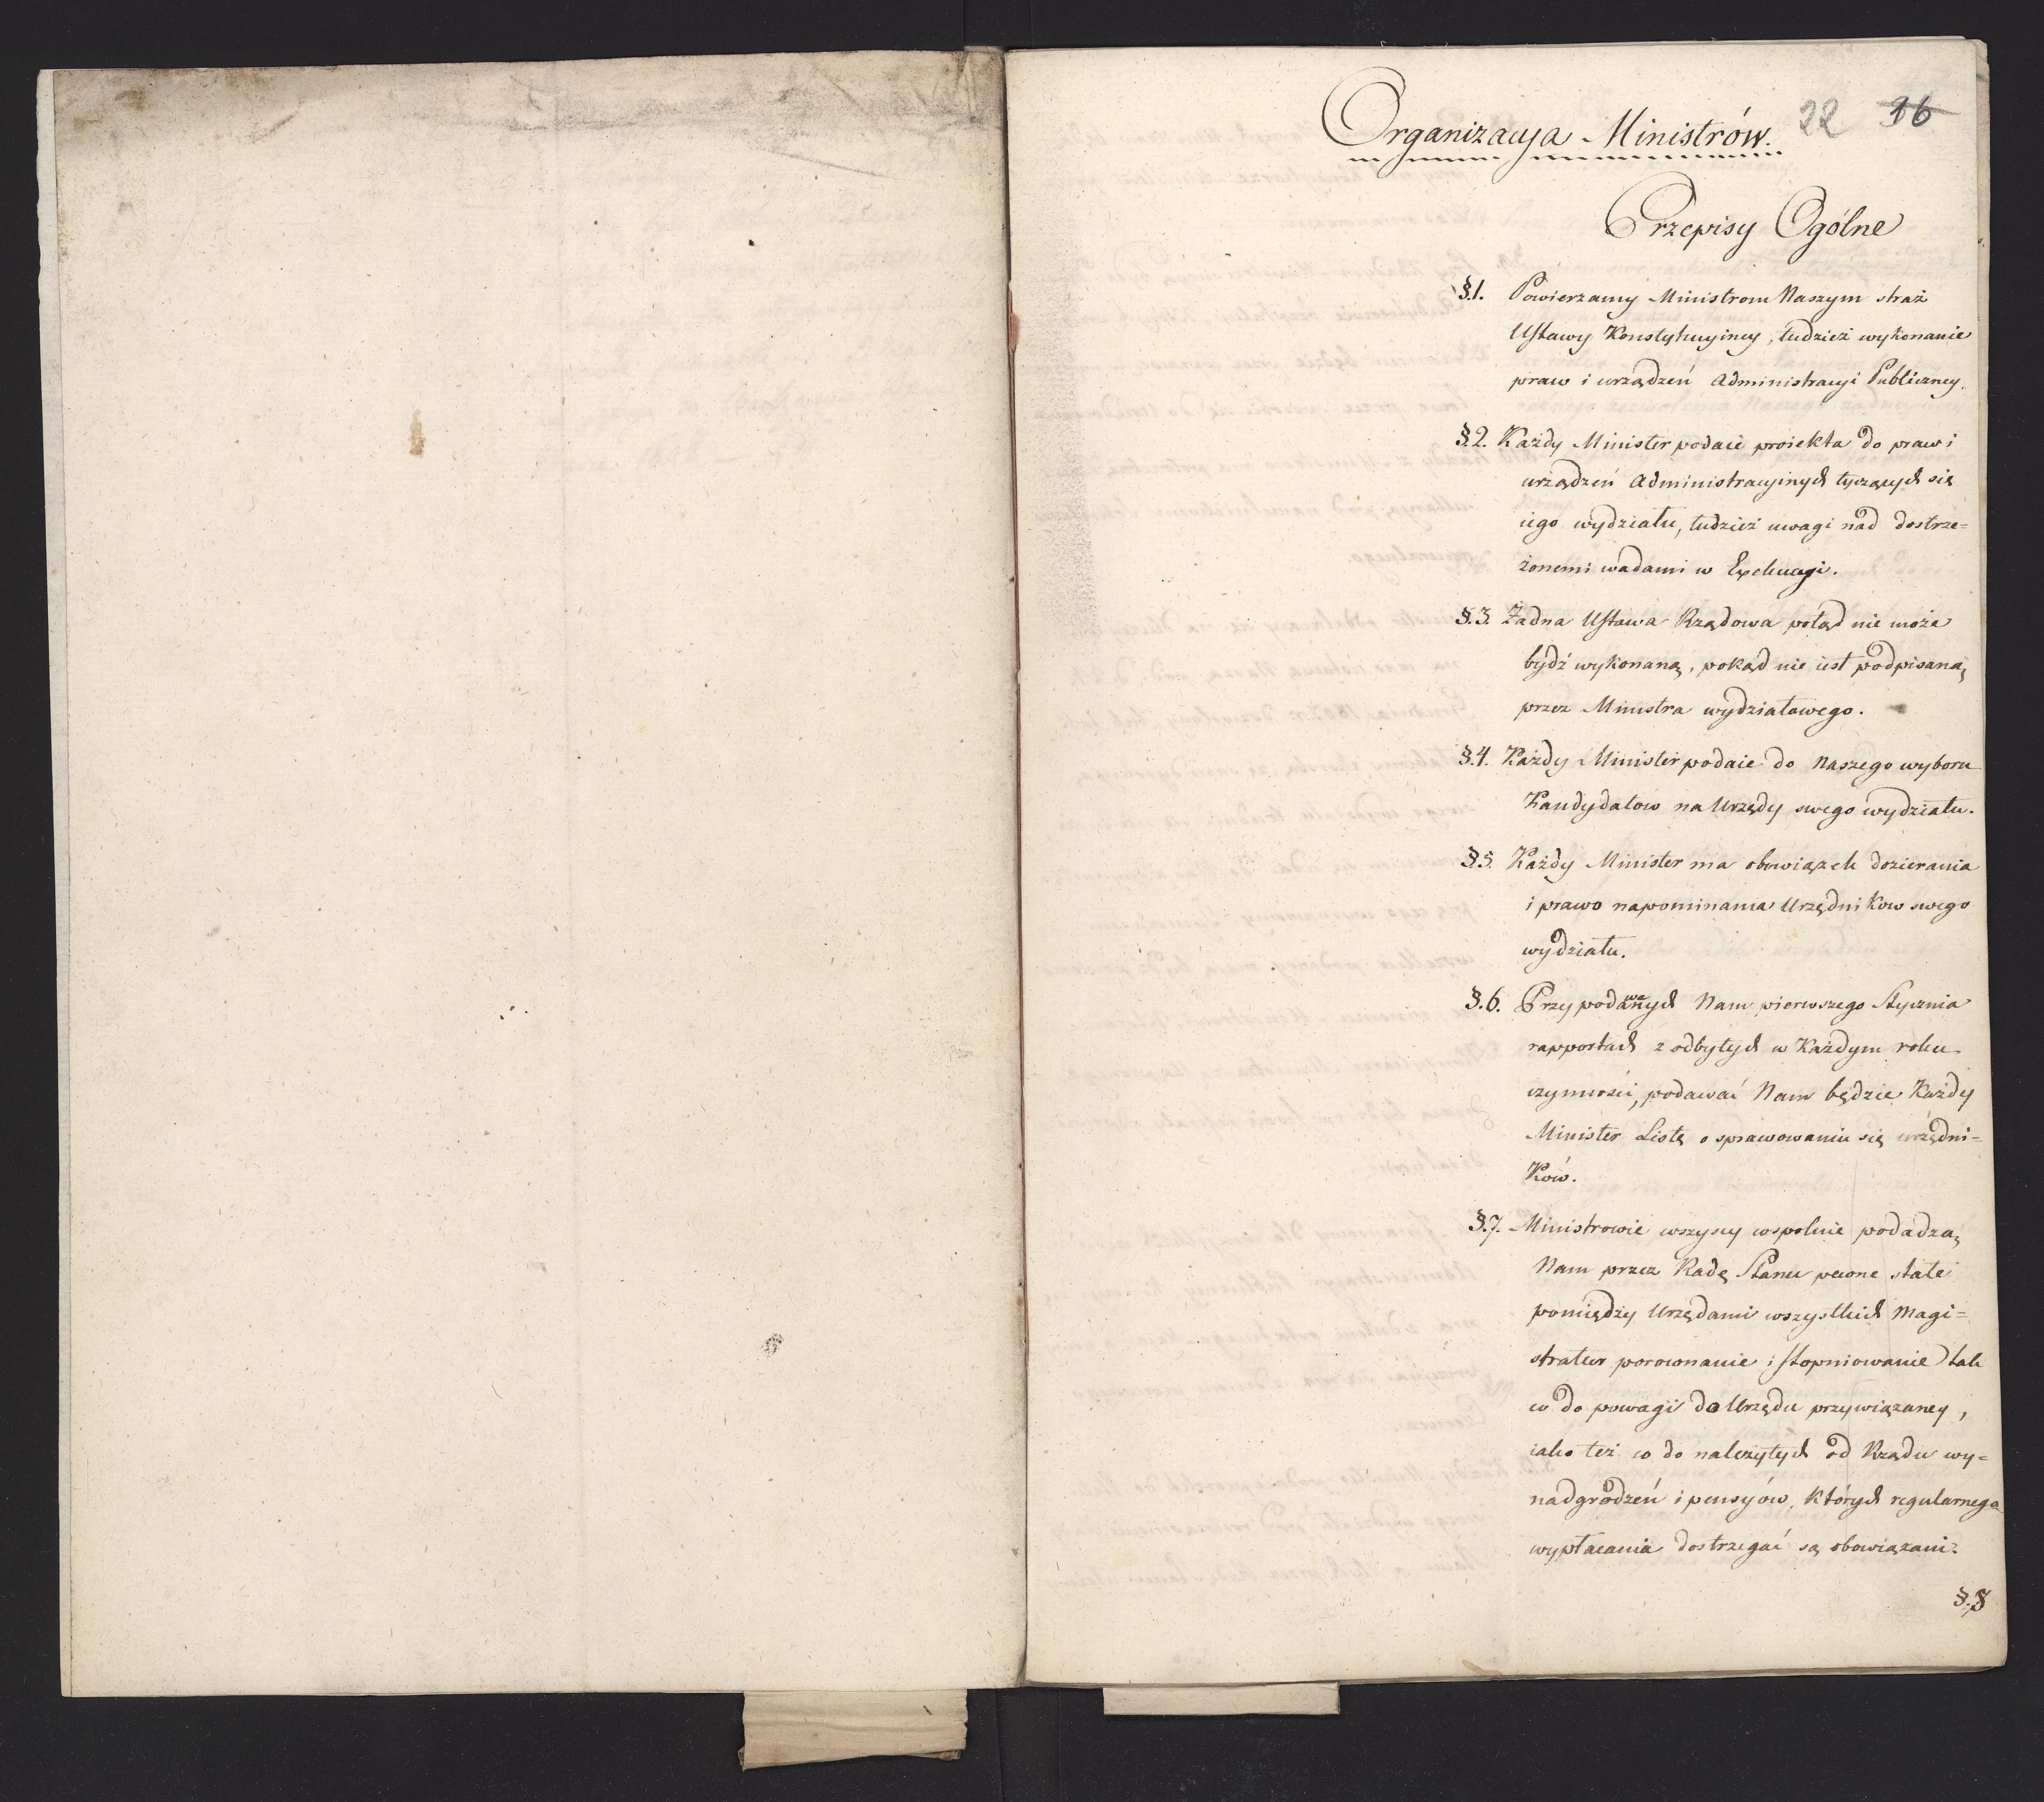 22 36
Organizacya Ministrów.
Przepisy Ogólne
§.1. Powierzamy Ministrom Naszym straż
Ustawy Konstytucyiney, tudzież wykonanie
praw i urządzeń Administracyi Publiczney.
§.2. Każdy Minister podaie proiekta do praw i
urządzeń Administracyinych tyczących się
iego wydziału, tudzież uwagi nad dostrze=
żonemi wadami w Exekucyi.
§.3. Żadna Ustawa Rządowa potąd nie może
bydź wykonaną, pokąd nie iest podpisaną
przez Ministra wydziałowego.
§.4. Każdy Minister podaie do Naszego wyboru
Kandydatow na Urzędy swego wydziału.
§.5. Każdy Minister ma obowiązek dozierania
i prawo napominania Urzędnikow swego
wydziału.
§.6. Przy podawanych Nam pierwszego Stycznia
rapportach z odbytych w Każdym roku
czynności, podawać Nam będzie Każdy
Minister Listę o sprawowaniu się urzędni=
Ków.
§.7. Ministrowie wszyscy wspolnie podadzą
Nam przez Radę Stanu pewne stałe
pomiędzy Urzędami wszystkich Magi=
stratur porownanie i stopniowanie tak
co do powagi do Urzędu przywiązaney,
iako też co do należytych od Rządu wy=
nadgrodzeń i pensyów, których regularnego
wypłacania dostrzegać są obowiązani.
§.8